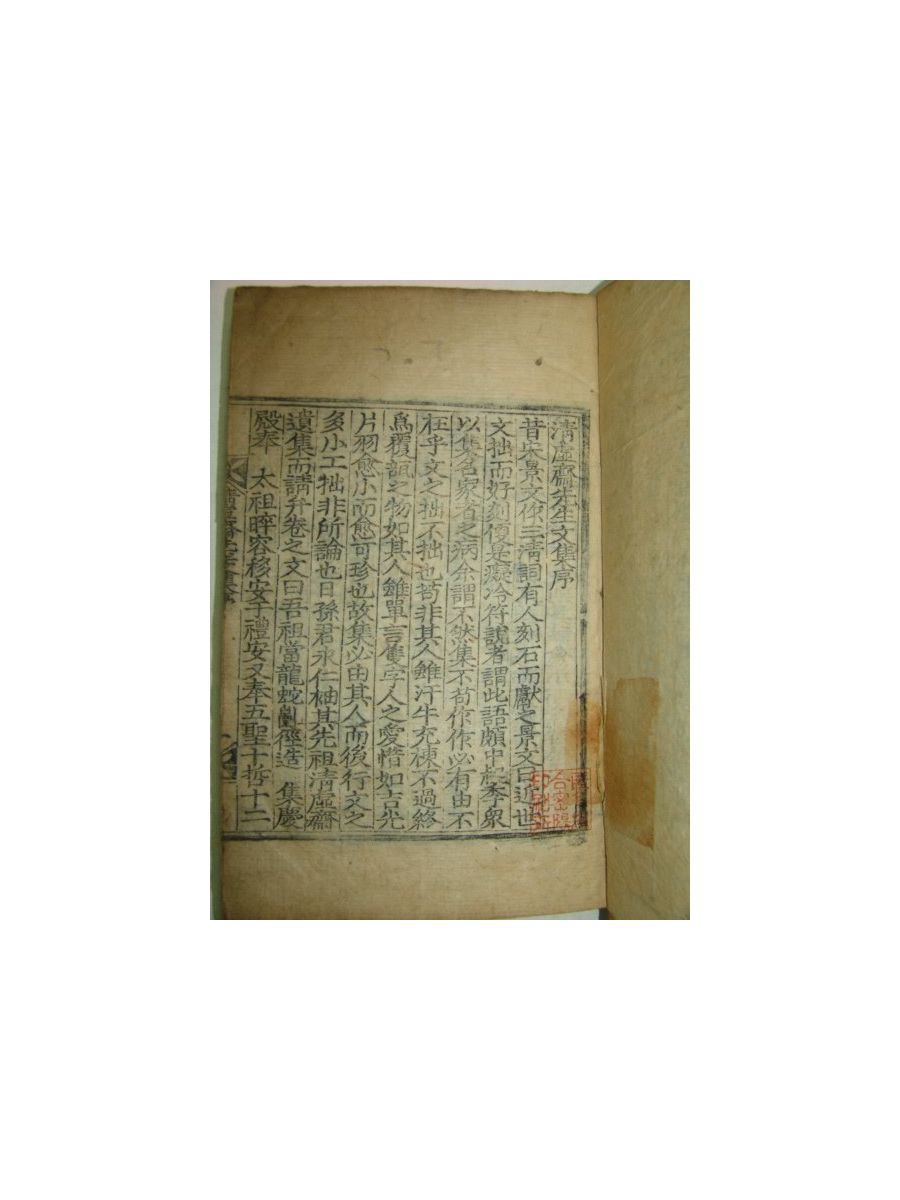 清虛齋先生文集序
昔宋景文作三清詞有人刻石而獻之景文曰近世
文拙而好刻復是癡冷符說者謂此語頗中起季衆
以集名家者之病余謂不然集不苟作作必有由不
在乎文之拙不拙也苟非其人雖汗牛充棟不過終
爲覆瓿之物如其人雖單言隻字人之愛惜如吉光
片羽愈小而愈可珍也故集必由其人而後行文之
多小工拙非所論也日孫君永仁袖其先祖清虛齋
遺集而請弁卷之文曰吾祖當龍蛇亂徑造 集慶
殿奉 太祖晬容移安于禮安又奉五聖十哲十二